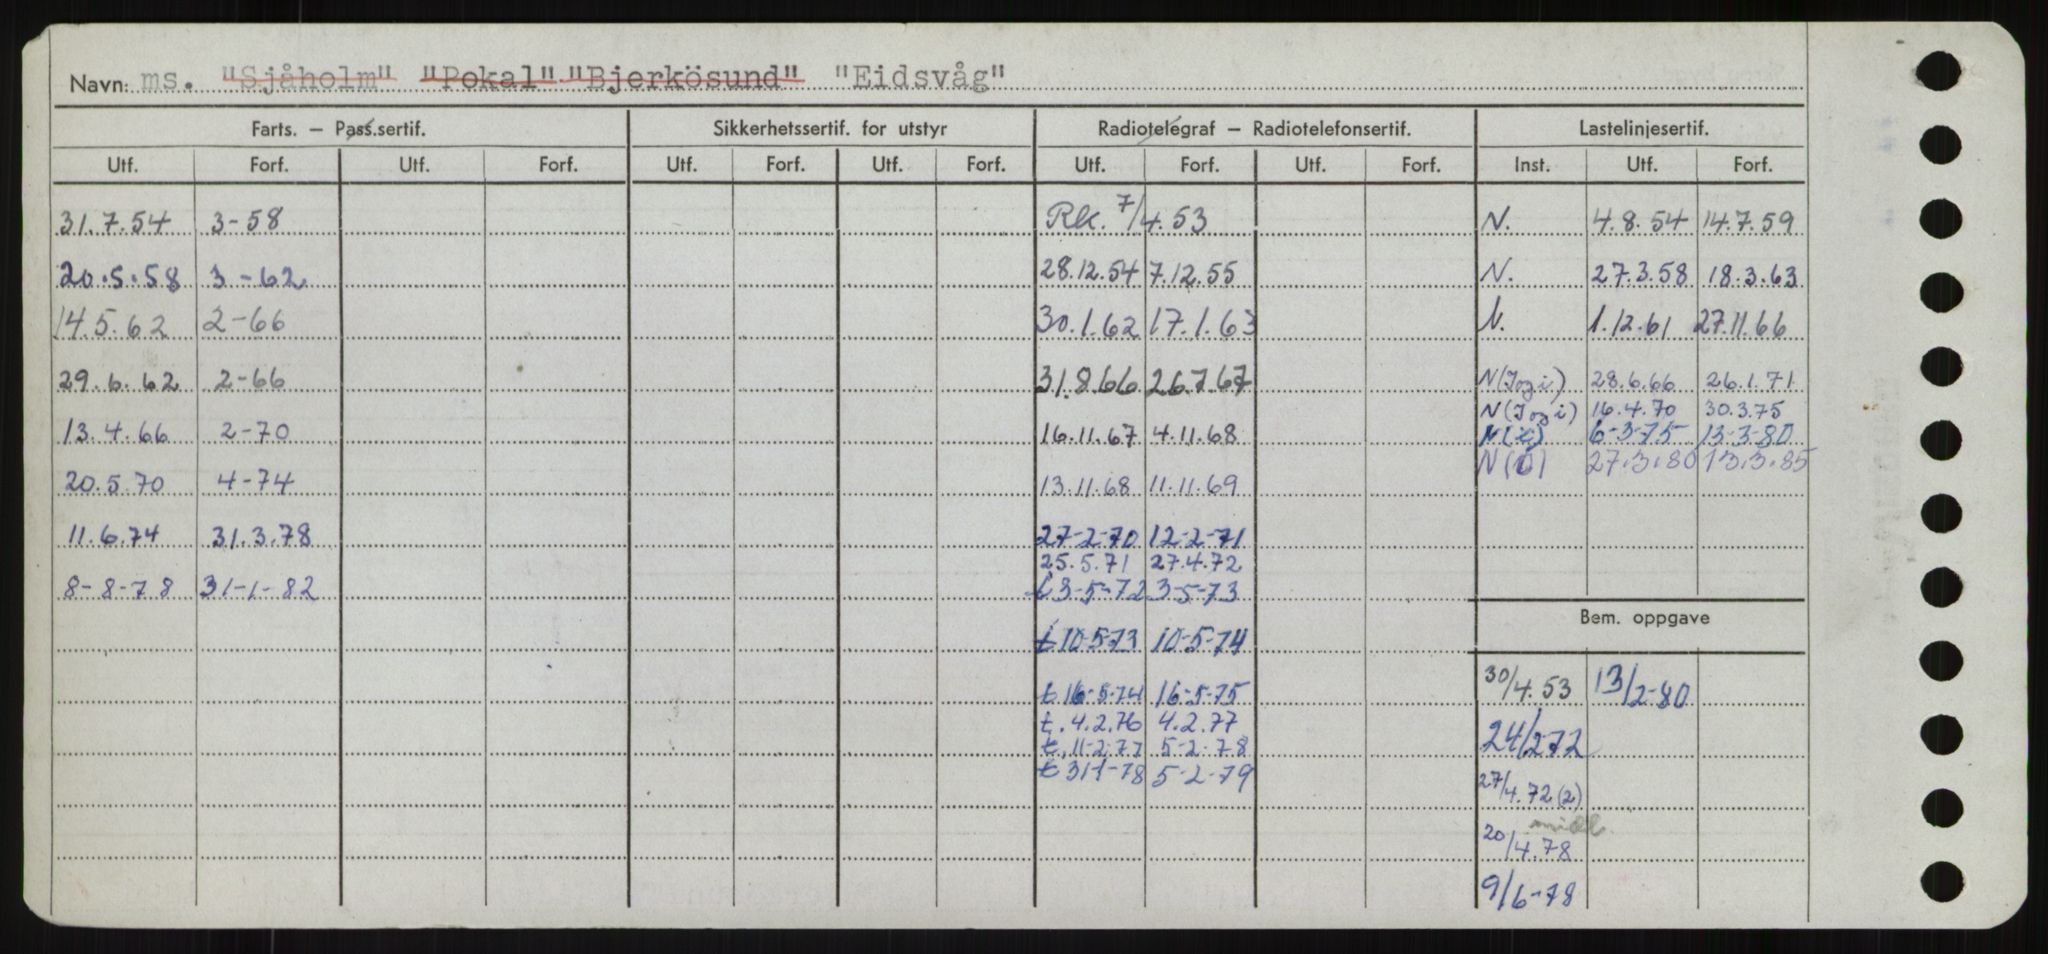 Navn: ms. "Sjåholm" "Pokal" "Bjerkösund" "Eidsvåg"
Farts. – Pass.sertif. Sikkerhetssertif. for utstyr Radiotelegraf – Radiotelefonsertif. Lastelinjesertif.
Utf. Forf. Utf. Forf. Utf. Forf. Utf. Forf. Utf. Forf. Utf. Forf. Inst. Utf. Forf.
31.7.54 3-58 Rk. 7/4.53 N. 4.8.54 14.7.59
20.5.58 3-62 28.12.54 7.12.55 N. 27.3.58 18.3.63
14.5.62 2-66 30.1.62 17.1.63 N. 1.12.61 27.11.66
29.6.62 2-66 31.8.66 26.7.67 N(I og i) 28.6.66 26.1.71
N(I og i) 16.4.70 30.3.75
13.4.66 2-70 16.11.67 4.11.68 N(i) 6-3-75 13-3-80
N(i) 27.3.80 13.3.85
20.5.70 4-74 13.11.68 11.11.69
11.6.74 31.3.78 27-2-70 12-2-71
25.5.71 27.4.72
8-8-78 31-1-82 t 3-5-72 3-5-73
Bem. oppgave
t 10-5-73 10-5-74
30/4.53 13/2-80
t 16-5-74 16-5-75
t. 4.2.76 4.2.77
24/2 72
t. 11-2-77 5-2-78
t 31-1-78 5-2-79
27/4.72 (2)
20/4.78
9/6-78